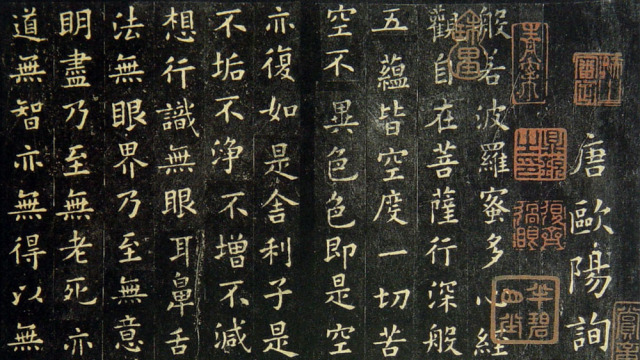 唐歐陽詢
般若波羅蜜多心經
觀自在菩薩行深般
五蘊皆空度一切苦
空不異色色即是空
亦復如是舍利子是
不垢不淨不增不減
想行識無眼耳鼻舌
法無眼界乃至無意
明盡乃至無老死亦
道無智亦無得以無